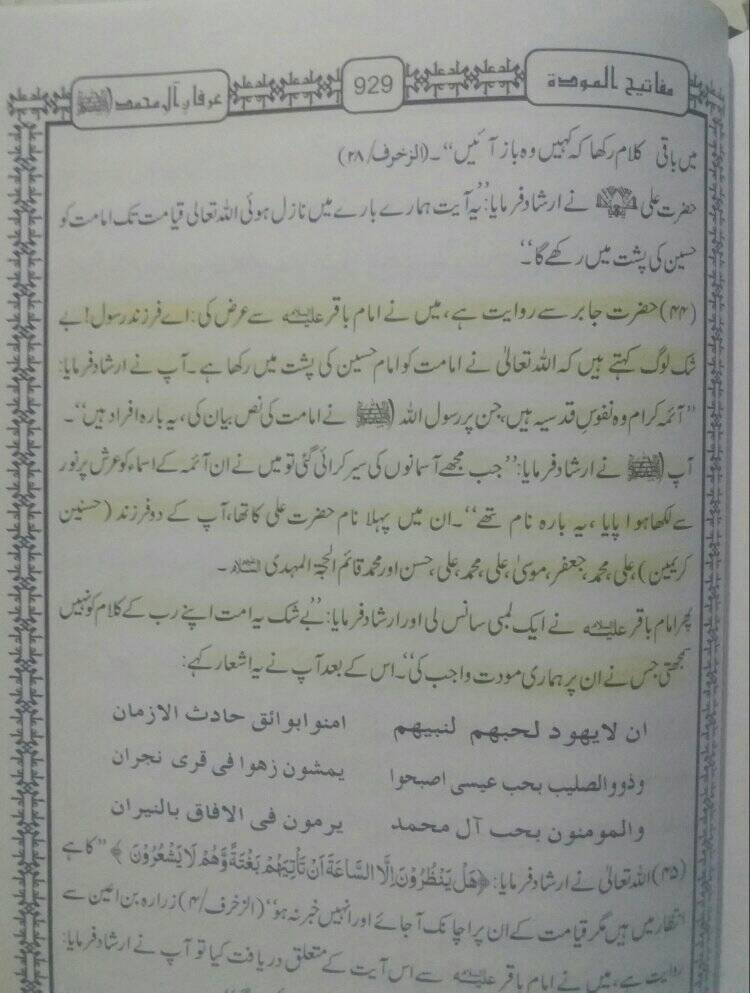 مفاتیح المودۃ
929
عرفانِ آل محمد (ﷺ)
میں باقی کلام رکھا کہ کہیں وہ باز آئیں‘‘۔(الزخرف/۲۸)
حضرت علی علیہ السلام نے ارشاد فرمایا:’’یہ آیت ہمارے بارے میں نازل ہوئی اللہ تعالی قیامت تک امامت کو
حسین کی پشت میں رکھے گا‘‘۔
(۴۴)حضرت جابر سے روایت ہے، میں نے امام باقر علیہ السلام سے عرض کی: اے فرزند رسول! بے
شک لوگ کہتے ہیں کہ اللہ تعالیٰ نے امامت کو امام حسین کی پشت میں رکھا ہے۔ آپ نے ارشاد فرمایا:
’’آئمہ کرام وہ نفوس قدسیہ ہیں، جن پر رسول اللہ (ﷺ) نے امامت کی نص بیان کی، یہ بارہ افراد ہیں‘‘۔
آپ (ﷺ) نے ارشاد فرمایا:’’جب مجھے آسمانوں کی سیر کرائی گئی تو میں نے ان آئمہ کے اسماء کو عرش پر نور
سے لکھا ہوا پایا، یہ بارہ نام تھے‘‘۔ ان میں پہلا نام حضرت علی کا تھا، آپ کے دو فرزند (حسنین
کریمین)، علی، محمد، جعفر، موسیٰ، علی، محمد، علی، حسن اور محمد قائم الحجۃ المہدی علیہم السلام۔
پھر امام باقر علیہ السلام نے ایک لمبی سانس لی اور ارشاد فرمایا:’’بے شک یہ امت اپنے رب کے کلام کو نہیں
سمجھتی جس نے ان پر ہماری مودت واجب کی‘‘۔ اس کے بعد آپ نے یہ اشعار کہے:
ان لایھود لحبھم لنبیھم امنوا بوائق حادث الازمان
وذووالصلیب بحب عیسی اصبحوا یمشون زھوا فی قری نجران
والمومنون بحب آل محمد یرمون فی الافاق بالنیران
(۴۵) اللہ تعالیٰ نے ارشاد فرمایا: ﴿هَلْ يَنْظُرُوْنَ اِلَّا السَّاعَةَ اَنْ تَاْتِيَهُمْ بَغْتَةً وَّهُمْ لَا يَشْعُرُوْنَ﴾ ’’کا ہے
انتظار میں ہیں مگر قیامت کے ان پر اچانک آجائے اور انہیں خبر نہ ہو‘‘(الزخرف/۴) زرارہ بن اعین سے
روایت ہے، میں نے امام باقر علیہ السلام سے اس آیت کے متعلق دریافت کیا تو آپ نے ارشاد فرمایا: